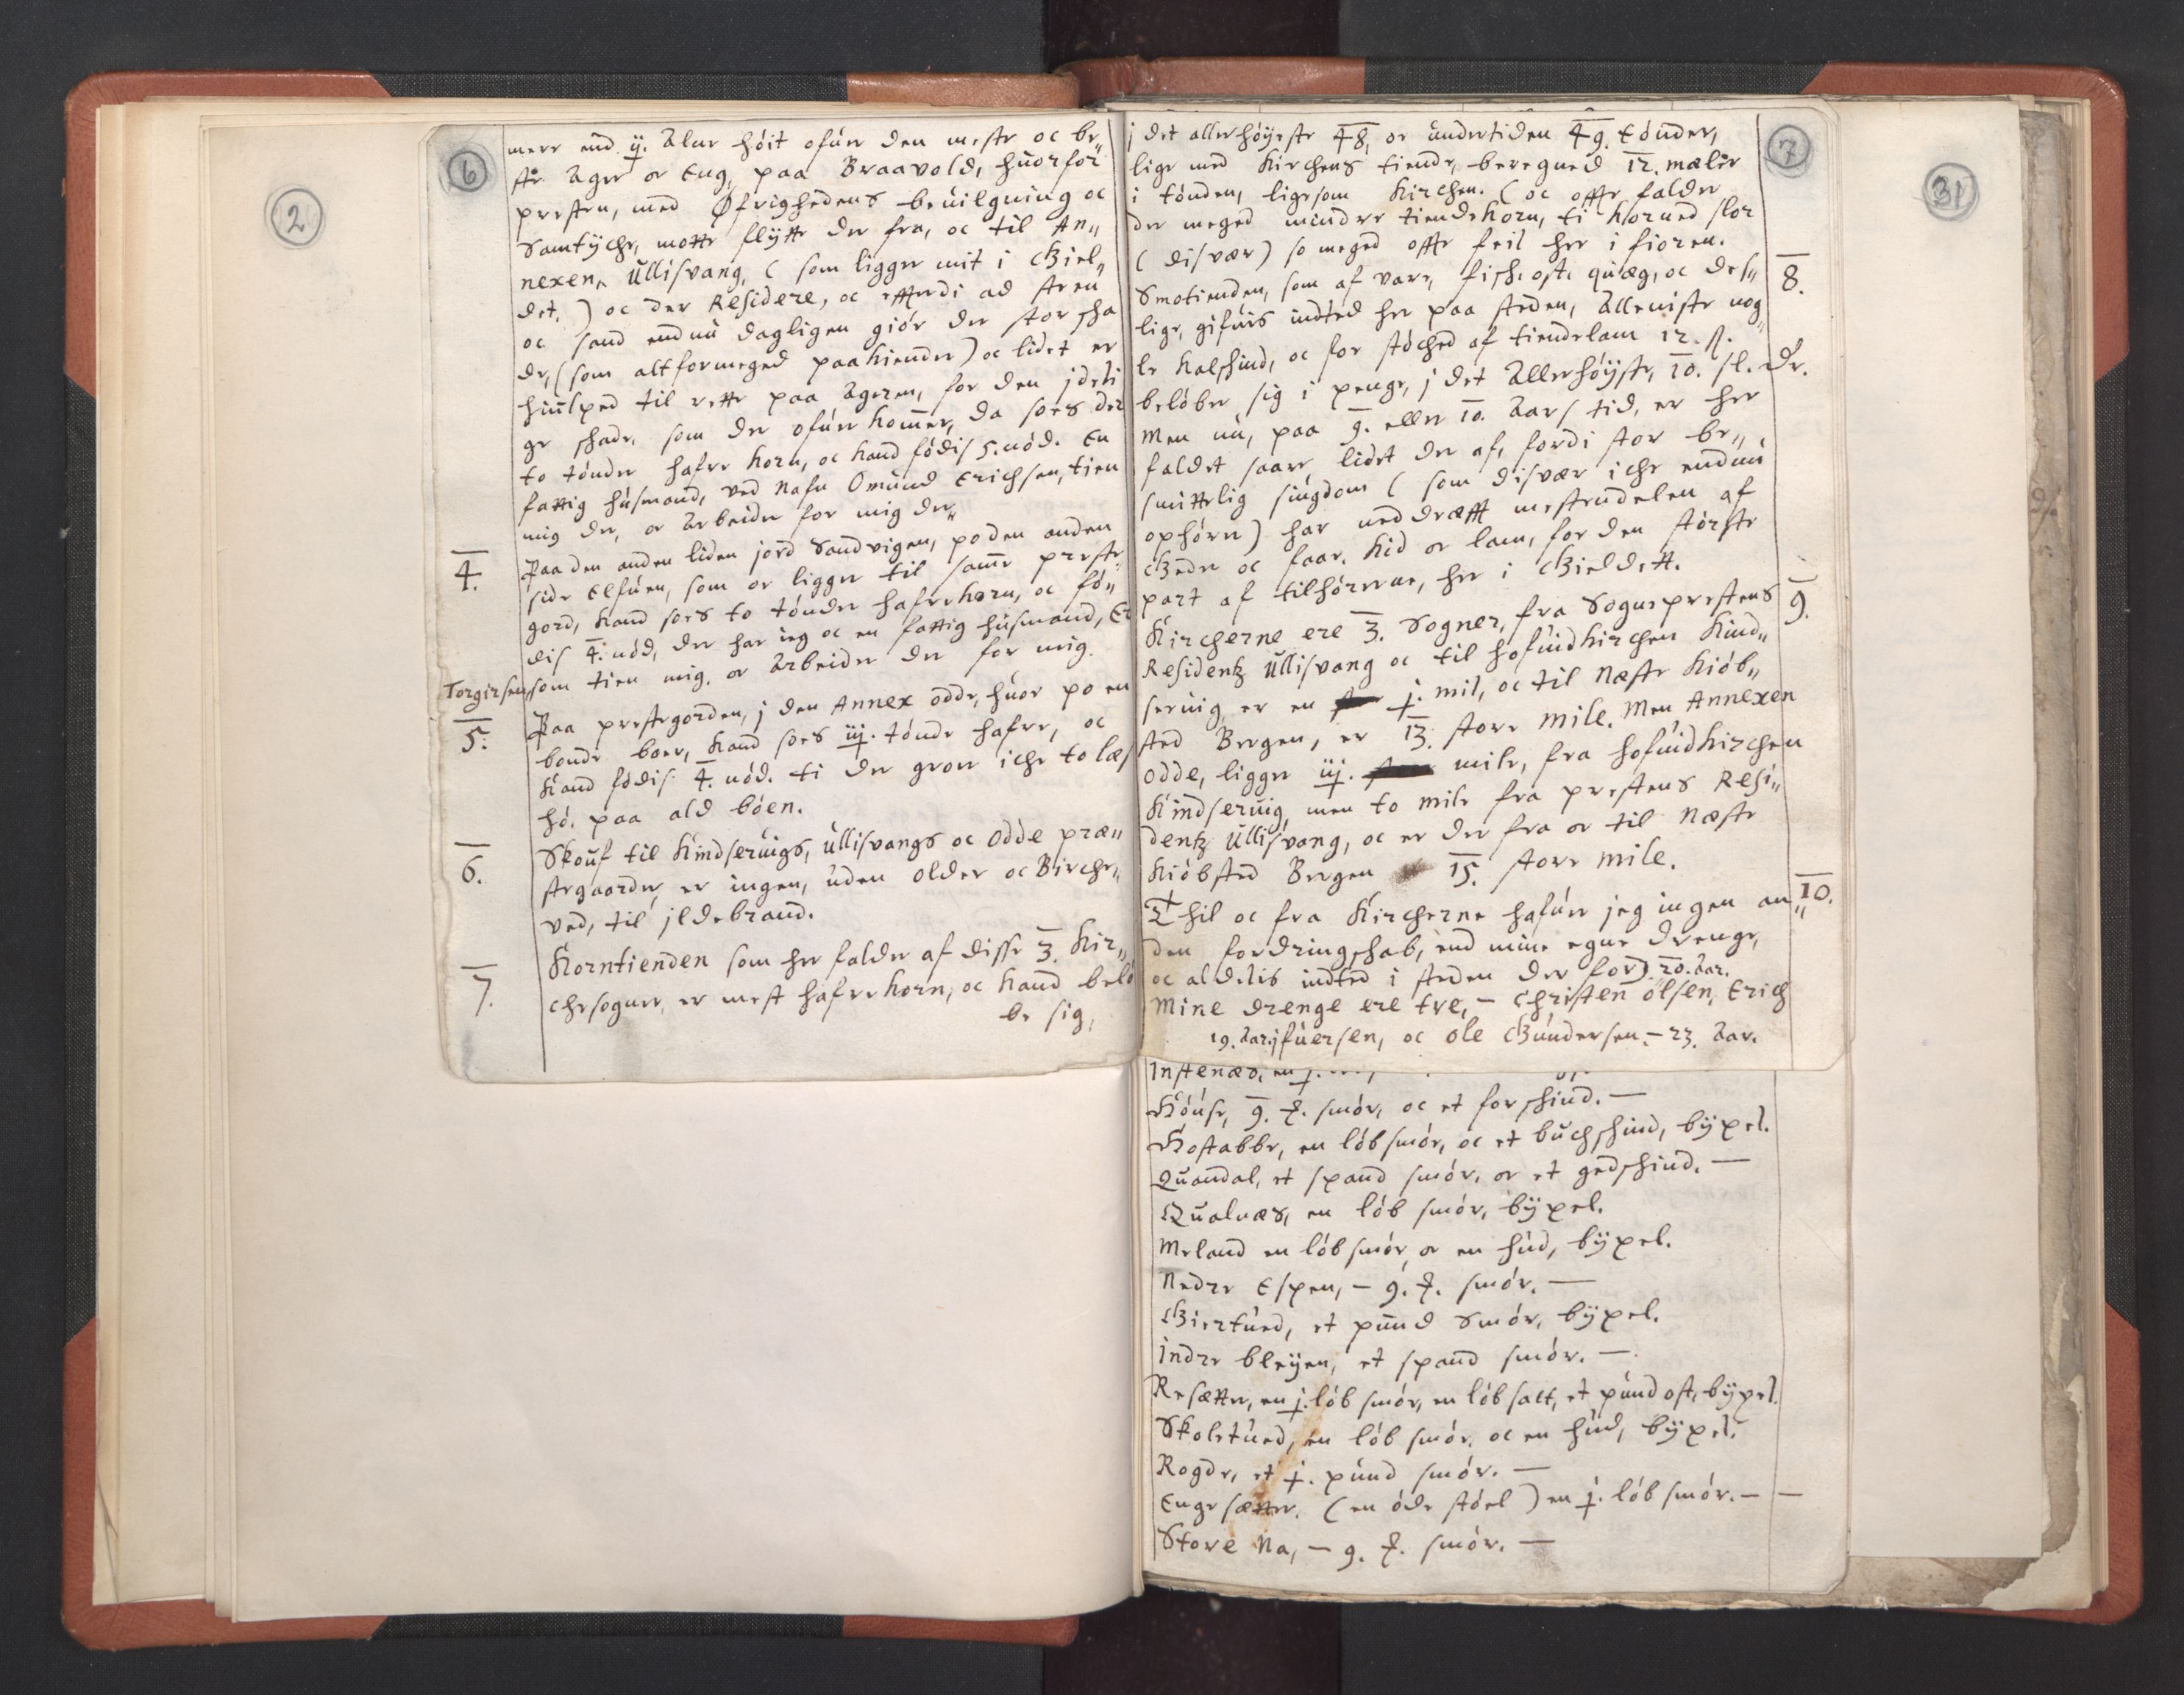 2
6
mere end ij. Alne höit ofuer den meste oc be„
ste Ager oc Eng, paa Braavold, huorfor
presten, med Øfrighedens beuilgning oc
Samtyche, motte flytte der fra, oc til An„
nexen, Ullisvang, (som ligger mit i Giel„
det.) oc der Residere, oc effterdi ad steen
oc sand endnu dagligen giör der stor scha
de, (som altformeged paakiender) oc lidet er
hiulped til rette paa Ageren, for den jdeli
ge schade, som der ofuer kommer, da soes der
to tönder hafre korn, oc kand födis 5. nöd. En
fattig husmand, ved Nafn Omund Erichsen, tien
mig der, oc Arbeider for mig der„
4. Paa den anden liden jord Sandvigen, po den anden
side Elfuen, som oc ligger til samme preste„
gord, kand soes to tönder hafrekorn, oc fö„
dis 4. nöd, der har ieg oc en fattig husmand, Er
Torgirsen, som tien mig, oc Arbeider der for mig.
5. Paa prestegorden, j den Annex odde, huor po en
bonde boer, kand soes iij. tönde hafre, oc
kand födis 4. nöd. ti der groer iche to læs
hö. paa ald böen.
6. Skouf til Kindseruigs, Ullisvangs oc Odde præ„
stegaarder, er ingen, uden older oc Birche„
ved, til jldebrand.
7. Korntienden som her falder af disse 3. Kir„
chesogner, er mest hafrekorn, oc kand belö
be sig,
7
31
j det allerhöyeste 48, oc undertiden 49. tönder,
lige med Kirchens tiende, beregned 12. mæler
i tönden, ligesom Kirchen. (oc offte falder
der meged mindre tiendekorn, ti korned slor
(disvær) so meged offte feil her i fioren.
8. Smotienden, som af vare, fisch, ost, quæg, oc des„
lige, gifuis indted her paa steden, Alleniste nog„
le kalfskind, oc for stöched af tiendelam 12. ß.
beløber sig i penge, j det Allerhöyste, 10. sl. dr.
Men nu, paa 9. eller 10. Aars tid, er her
faldet saare lidet der af, fordi stor be„
smittelig siugdom (som disvær iche endnu
ophörer) har neddræfft mestendelen af
Geder oc faar, Kid oc lam, for den störste
part af tilhörerne, her i Gieldett.
9. Kircherne ere 3. Sogner, fra Sogneprestens
Residentz Ullisvang oc til hofuidkirchen Kind„
seruig, er en j. mil, oc til Næste Kiöb„
sted Bergen, er 13. store mile. Men Annexen
Odde, ligger iij. mile, fra hofuidkirchen
Kindseruig, men to mile fra prestens Resi„
dentz Ullisvang, oc er der fra oc til Næste
Kiöbsted Bergen 15. store mile.
10. Thil oc fra Kircherne hafuer jeg ingen an„
den fordringschab, end mine egne drenge,
oc aldelis indted i steden der for). 20. Aar.
Mine drenge ere tre, – Christen Olsen, Erich
19. Aar. jfuersen, oc Ole Gundersen. – 23. Aar.
Instenæs, en j.
Köuse, 9. smör, oc et forschind. —
Kostabbe, en löb smör, oc et buchschind, býxel.
Quandal, et spand smör, oc et gedschind. —
Qualnæs, en löb smör, býxel.
Meland en löb smör, oc en hud, býxel.
Nedre Espen, – 9. smör. —
Giertued, et pund Smör, býxel.
Indre bleyen, et spand smör. —
Resætter, en j. löb smör, en löb salt, et pund ost, býxel.
Skoletued, en löb smör, oc en hud, býxel.
Rogde, et j. pund smör. —
Engesætter, (en öde stöel) en j. löb smör. — —
Store Na, – 9. smör. —